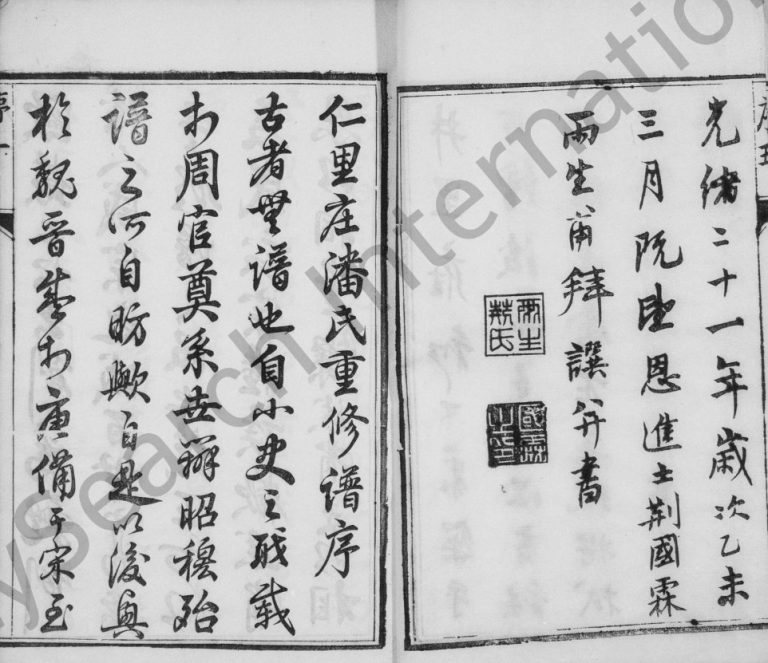 光緒二十一年歲次乙未
三月既望恩進士荆國霖
雨生甫拜譔并書
雨生
荆氏
國霖
之印
仁里庄潘氏重修譜序
古者無譜也自小史之職載
於周官奠系世辨昭穆殆
譜之所自昉歟自是以後興
於魏晉盛於唐備于宋至
序一
序五
MySearch International